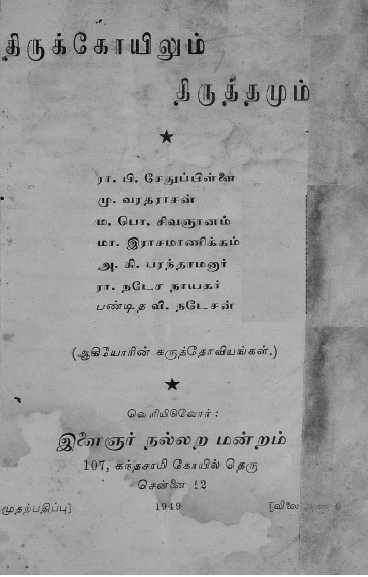 திருக்கோயிலும்
திருத்தமும்
ரா. பி. சேதுப்பிள்ளை
மு. வரதராசன்
ம. பொ. சிவஞானம்
மா. இராசமாணிக்கம்
அ. கி. பரந்தாமனார்
ரா. நடேச நாயகர்
பண்டித வி. நடேசன்
(ஆகியோரின் கருத்தோவியங்கள்.)
வெளியிடுவோர் :
இளைஞர் நல்லற மன்றம்
107, கந்தசாமி கோயில் தெரு
சென்னை 12
முதற்பதிப்பு] 1949 [விலை அணா 6